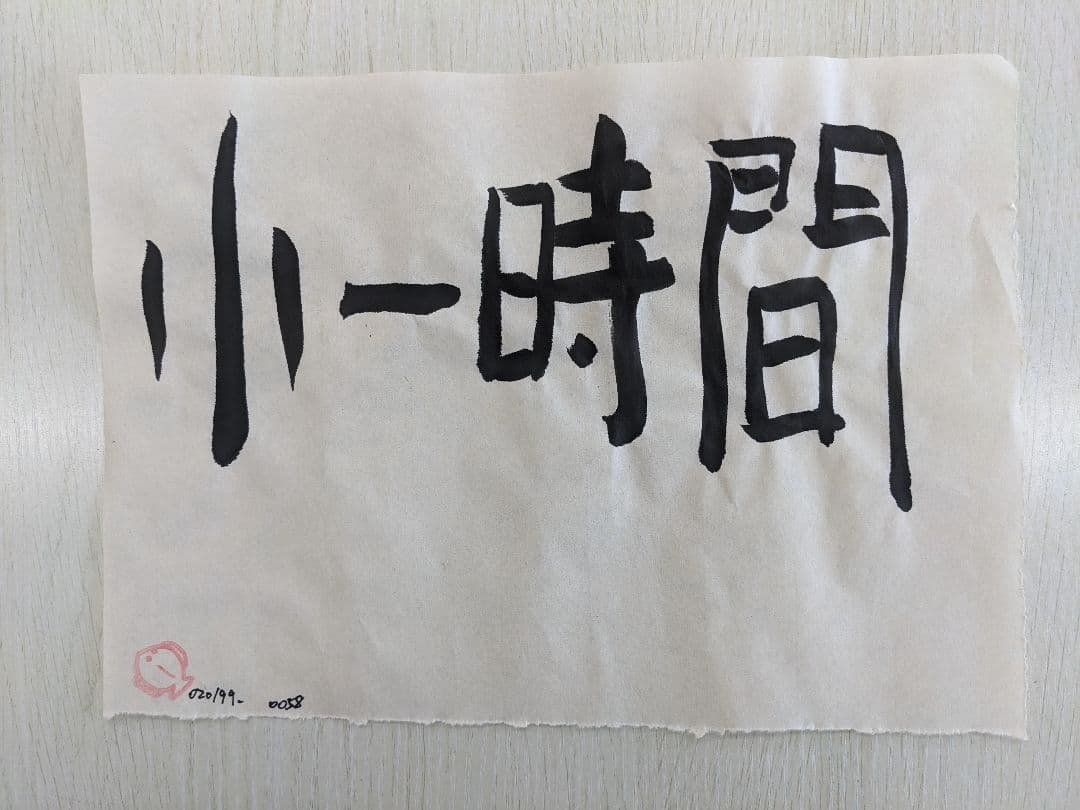 小一時間
020199- 0058